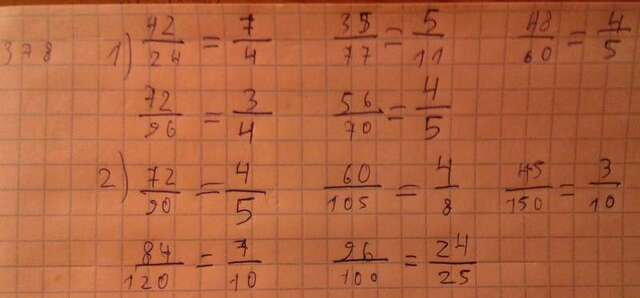 378 1) 42/24 = 7/4 35/77 = 5/11 48/60 = 4/5
72/96 = 3/4 56/70 = 4/5
2) 72/90 = 4/5 60/105 = 4/8 45/150 = 3/10
84/120 = 7/10 96/100 = 24/25